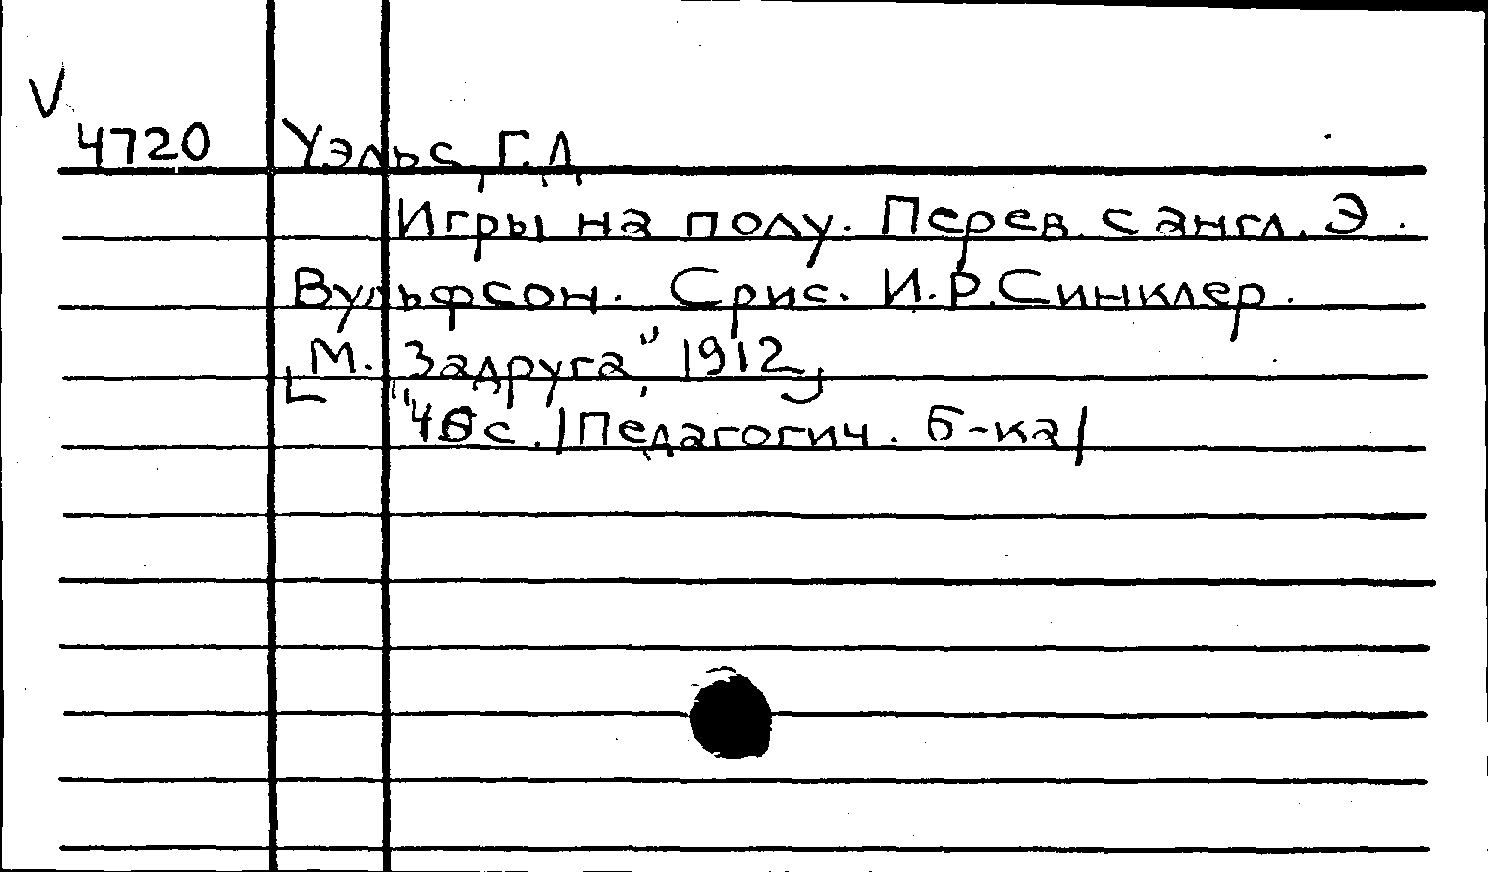 V
4720 Уэльс, Г.Д.
Игры на полу. Перев. с англ. Э.
Вульфсон. С рис. И.Р. Синклер.
[М. "Задруга", 1912]
с. /Педагогич. Б-ка/